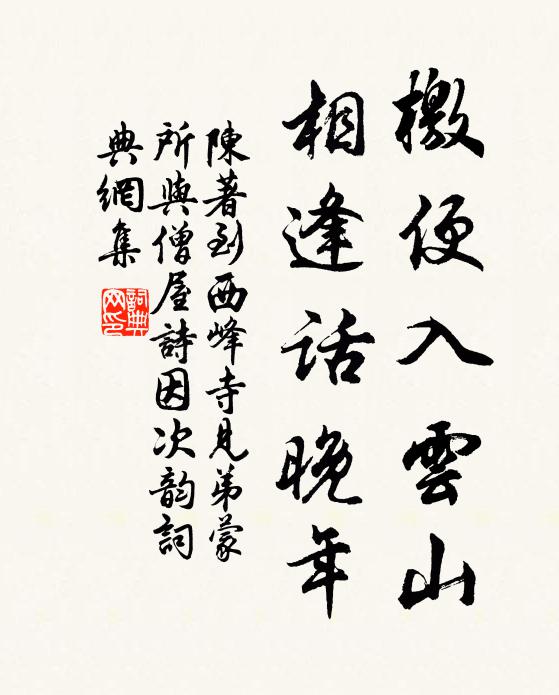 檄便入雲山
相逢話晚年
陳著到西峰寺見弟蒙
所與僧屋詩因次韵詞
典網集
詞典網印